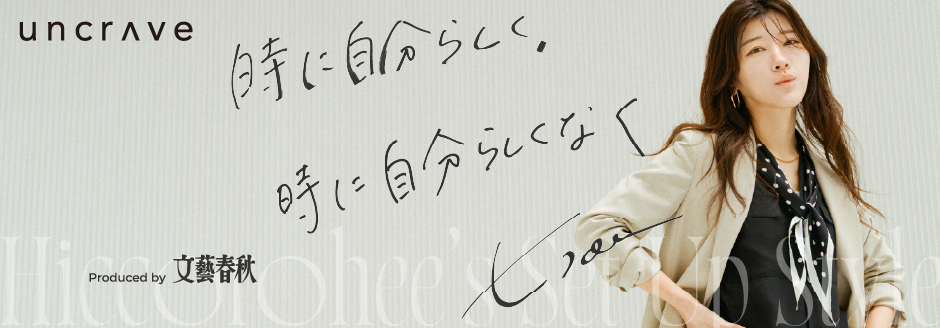 uncrave
時に自分らしく.
時に自分らしくなく
Produced by 文藝春秋
Hiccorohee's Set Up Style